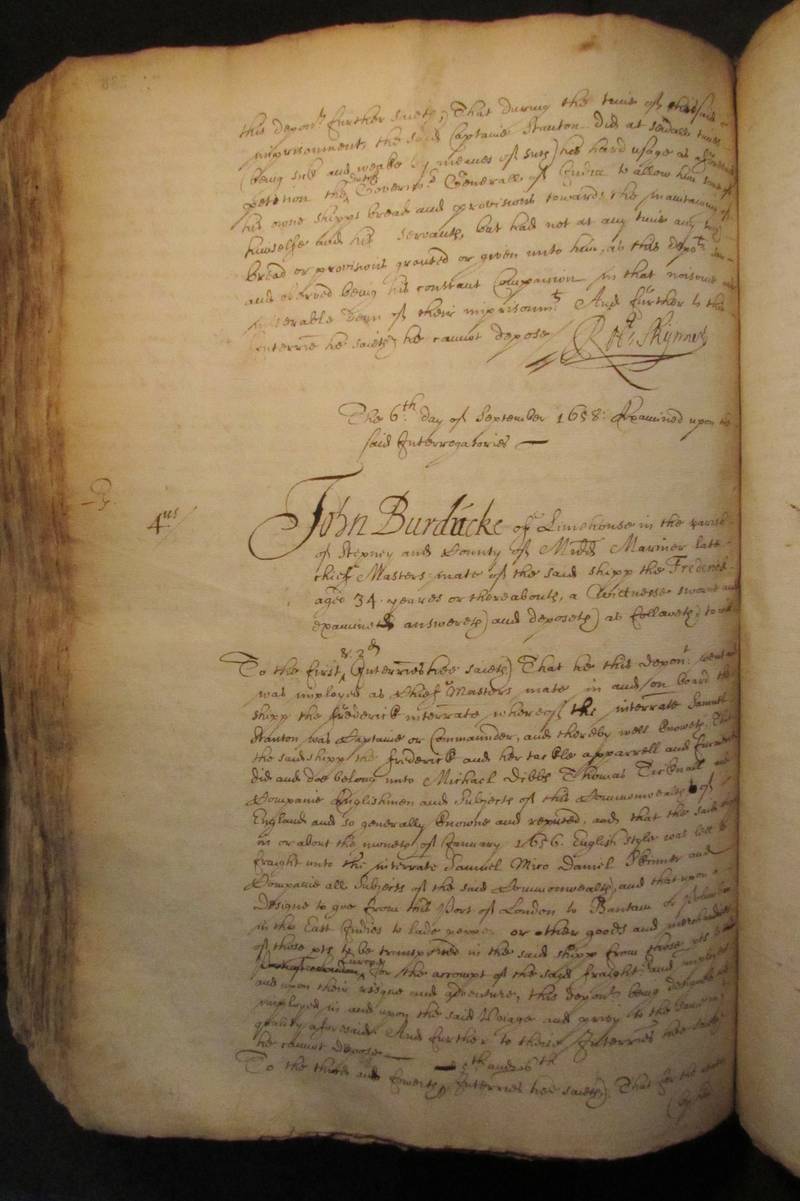 this depont further saieth, That during the time of their said
imprisonment, the said Captaine Stanton did at severall times
(being sick and weake by meanes of such hard usage as aforesaid)
petition the Dutch Governor Generall of India to allow him some of
his owne shipps bread and provisions towards the maintaining of
himselfe and his servants, but had not at any time any
bread or provisions granted or given unto him, as this depot
and observed being his constant Companion in that noisome and
miserable Den of their imprisonmt. And further to this
Interrie he saieth, he cannot depose
Robt. Skynner
The 6th day of September 1658: Examined upon the
said Interrogatories
4us
John Burducke of Limehouse in the parish
of Stepney and County of Midd Mariner late
chief Masters mate of the said shipp the Frederick
aged 34 yeares or thereabouts, a Witnesse sworne and
examined answereth and deposeth as followeth, to wit
To the first & 2d Interries hee saieth, That he this depont
was imployed as Chief Masters mate in and on board the
shipp the Frederick interrate whereof the interrate Samuel
Stanton was Captaine or Commander, and thereby well knoweth, That
the said shipp the Frederick and her tackle apparrell and furniture
did and doe belong unto Michael Dibbs Thomas Ticknall and
Companie Englishmen and Subjects of this Commonwealth of
England and so generally knowne and reputed, and that the said shipp
in or about the moneth of January 1656. English style was lett to
fraight unto the interrate Samuel Mico Daniel Skinner and
Companie all Subjects of the said Commonwealth, and that upon a
Designe to goe from this Port of London to Bantam or
in the East Indies to lade pepper or other goods and merchandizes
of those pts to be transported in the said shipp from those pts to
Europe for the accompt of the said fraighters and imployers
and upon their risque and adventure, this depont being designed and
imployed in and upon the said Voiage and privy to the same in
quality aforesaid. And further to these Interries hee saieth
he cannot depose
To the third and fowerth, 5th and 26th Interries hee saieth, That for the